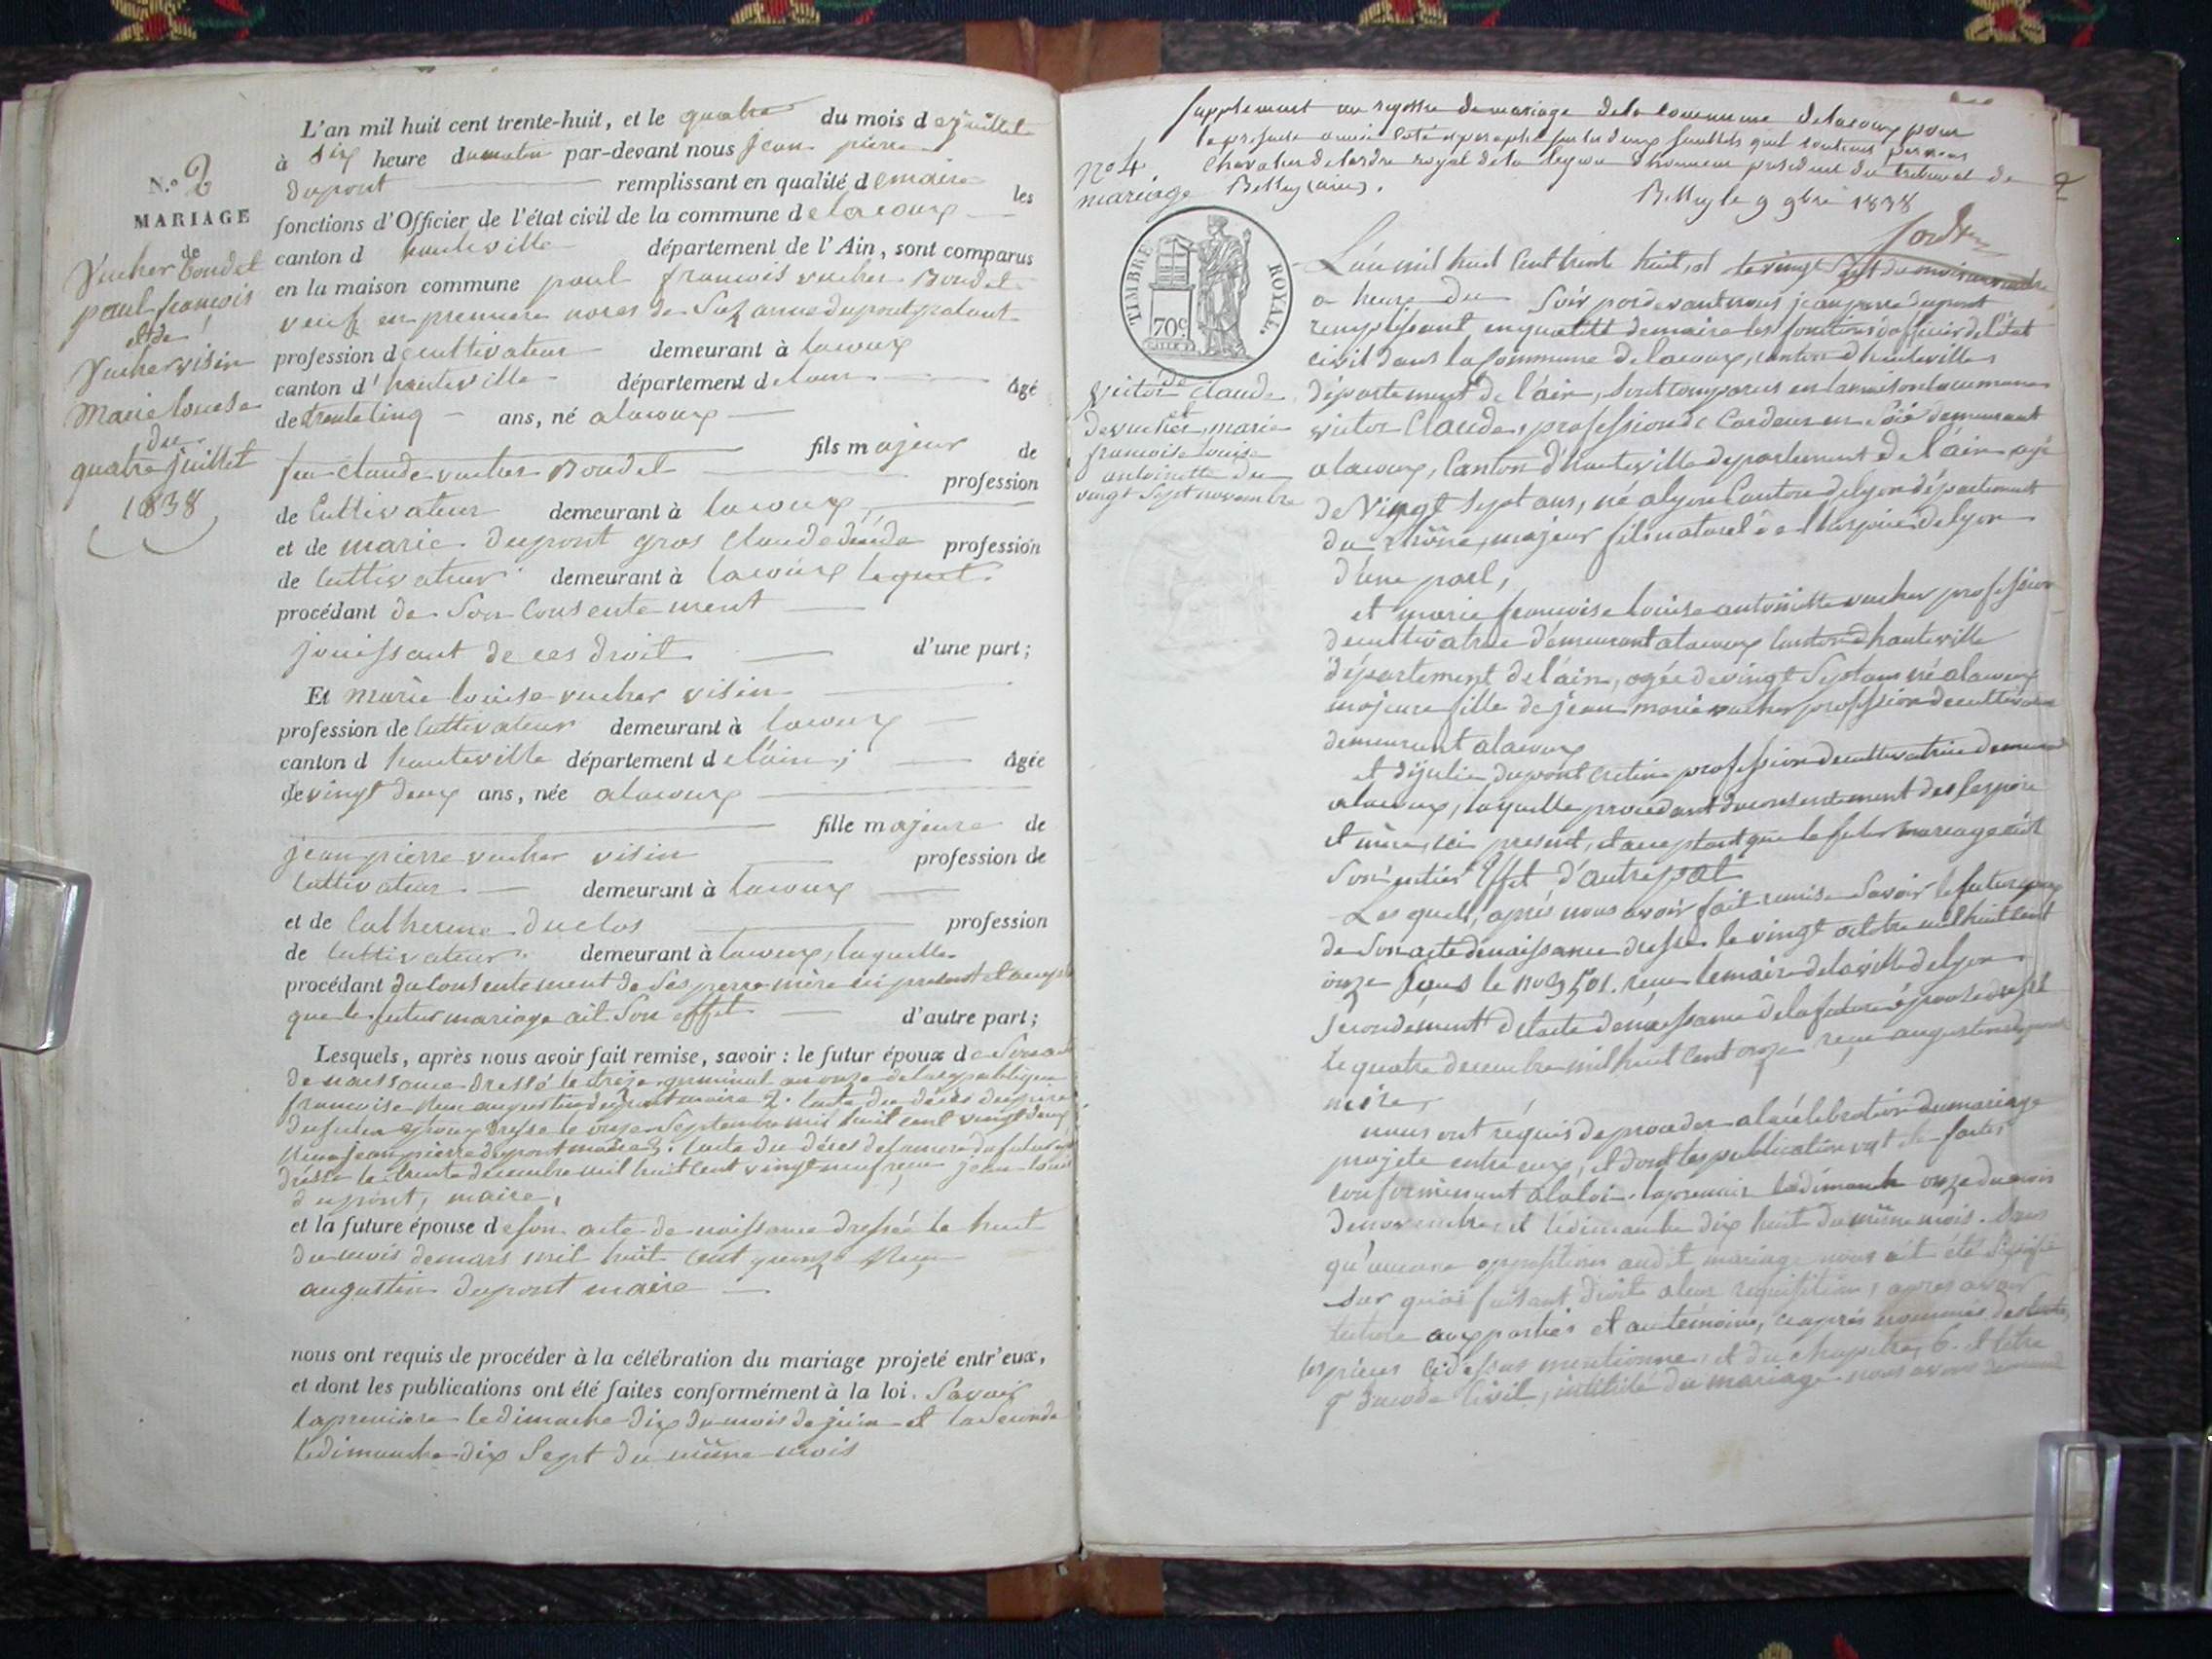 N.° 2
MARIAGE
de
Vucher Boudet
paul françois
et de
Vucher visin
Marie louise
du
quatre juillet
1838
L'an mil huit cent trente-huit, et le quatre du mois de juillet
à six heure du matin par-devant nous jean pierre
dupont remplissant en qualité de maire les
fonctions d'Officier de l'état civil de la commune de lacoux
canton d hauteville département de l'Ain, sont comparus
en la maison commune paul francois vucher Boudet
veuf en premiere noces de Suzanne dupont
profession de cultivateur demeurant à lacoux
canton d' hauteville département de lain agé
de trente cinq ans, né a lacoux
fils majeur de
feu claude vucher Boudet profession
de Cultivateur demeurant à lacoux
et de marie dupont gros claude profession
de cultivateur demeurant à lacoux lequel
procédant de Son Consentement
jouissant de ces droit d'une part;
Et marie louise vucher visin
profession de cultivateur demeurant à lacoux
canton d hauteville département de l'ain; âgée
de vingt deux ans, née a lacoux
fille majeure de
jean pierre vucher visin profession de
cultivateur demeurant à lacoux
et de Catherine Duclos profession
de cultivateur demeurant à lacoux, laquelle
procédant du Consentement de Ses perre mère ici présent
que le futur mariage ait Son effet d'autre part;
Lesquels, après nous avoir fait remise, savoir: le futur époux de Son
de naissance Dressé le treize germinal an onze de la republique
francoise augustin dupont maire 2. lacte du décès du pere
du futur epoux Dressé le onze Septembre mil huit cent vingt deux
jean pierre dupont maire 3. lacte du déces de la mere du futur
dressé le trente decembre mil huit cent vingt neuf reçu jean louis
dupont, maire,
et la future épouse de son acte de naissance dressée le huit
du mois de mars mil huit cent quinze reçu
augustin dupont maire
nous ont requis de procéder à la célébration du mariage projeté entr'eux,
et dont les publications ont été faites conformément à la loi. Savoir
la premiere le dimanche dix du mois de juin et la Seconde
le dimanche dix Sept du même mois
Supplement au registre de mariage de la commune de lacoux pour
la presente année coté et paraphé sur les deux feuillets quil contient par nous
Chevalier de lordre royal de la legion d'honneur president du tribunal de
Belley (ain).
Belley le 9 9bre 1838
n° 4
mariage
TIMBRE ROYAL.
70c
de
victor Claude
et
de vucher, marie
francoise louise
antoinette du
vingt Sept novembre
L'an mil huit Cent trente huit, et le vingt Sept du mois novembre
a heure du Soir pardevant nous jean pierre dupont
remplissant en qualité de maire les fonctions d'officier de l'état
civil dans la Commune de lacoux, canton d hauteville
département de l'ain, Sont comparus en la maison commune
victor Claude, profession de Cardeur en Soie demeurant
a lacoux, Canton d'hauteville departement de l'ain agé
de Vingt Sept ans, né a lyon Canton de lyon département
du rhône, majeur fils naturel de l'hospice de lyon
d'une part,
et marie francoise louise antoinette vucher profession
de cultivatrice demeurant a lacoux canton d hauteville
département de l'ain, agée de vingt Sept ans né a lacoux
majeure fille de jean marie vucher profession de cultivateur
demeurant a lacoux
et de julie dupont profession de cultivatrice demeurant
a lacoux, laquelle procedant du consentement des Ses père
et mère, ici present, et acceptant que le futur mariage ait
Son entier Effet d'autre part
Les quels, après nous avoir fait remise Savoir le futur epoux
de Son acte de naissance dressé le vingt octobre mil huit cent
onze Sous le no 3501. reçu le maire de la ville de lyon
Secondement de lacte de naissance de la future épouse dressé
le quatre decembre mil huit Cent onze reçu augustin dupont
maire,
nous ont réquis de proceder a la célébration du mariage
projeté entre eux, et dont les publication ont été faites
conformément a la loi. la premiere le dimanche onze du mois
de novembre, et le dimanche dix huit du même mois. Sans
qu'aucune opposition audit mariage nous ait été Signifié
Sur quoi faisant droit a leur requisition, apres avoir
lecture aux parties et au témoins, ci après nommés de toutes
les pièces ci dessus mentionné, et du chapitre, 6. et titre
du code Civil, intitulé du mariage nous avons demandé